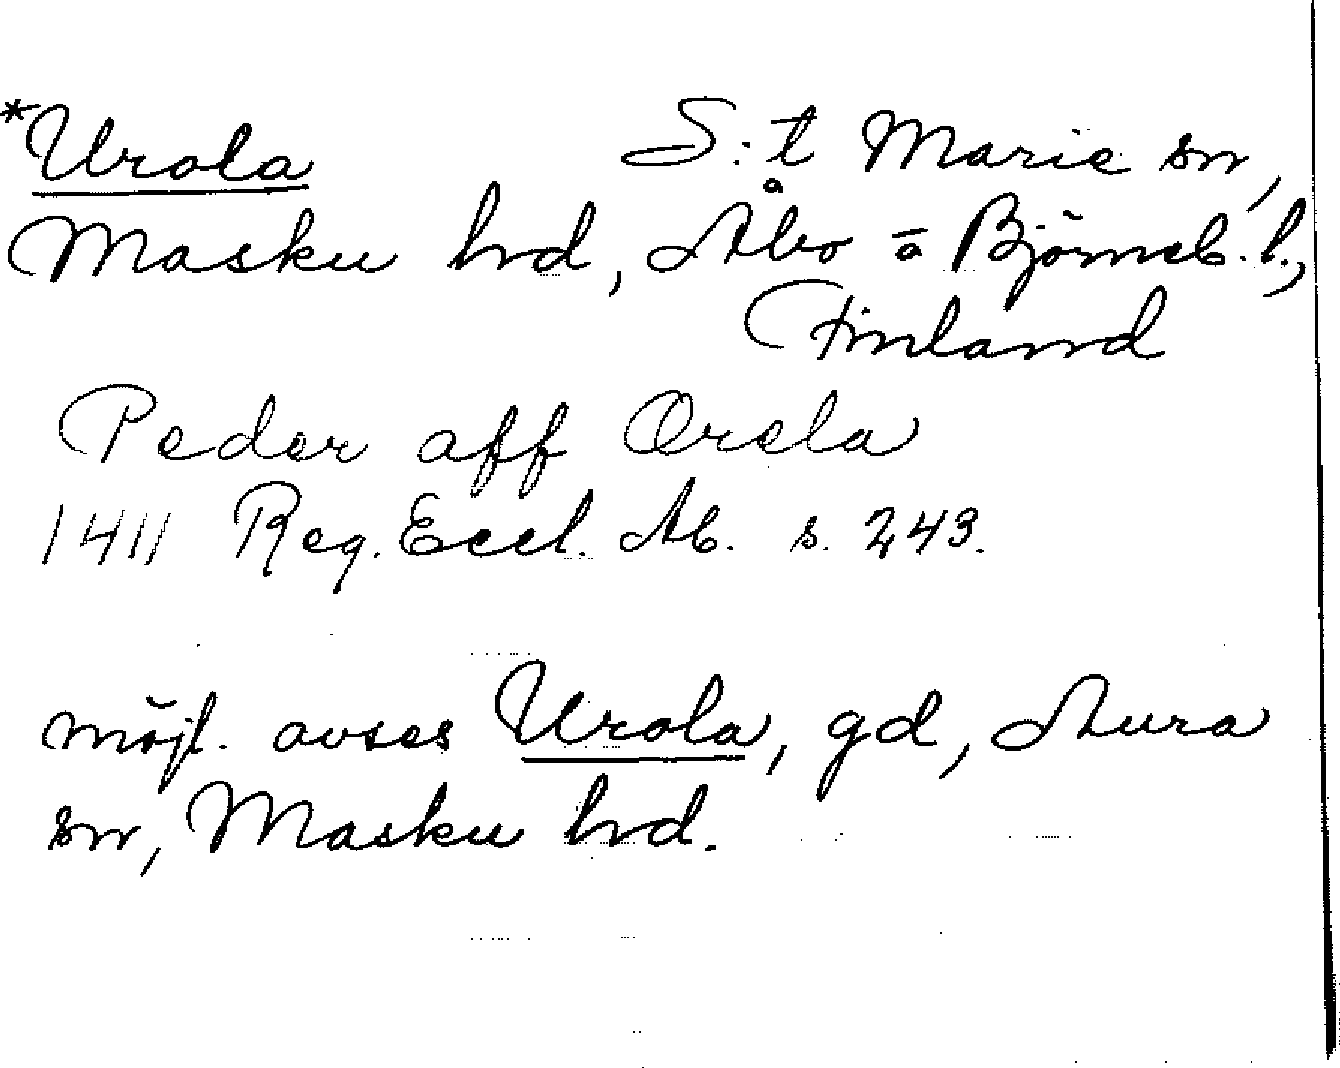 *Urola S:t Marie sn,
Masku hd, Åbo = a Björneb. l.,
Finland
Peder aff Orela
1411 Reg. Eccl. Ab. s. 243.
möjl. avses Urola, gd, Aura
sn, Masku hd.